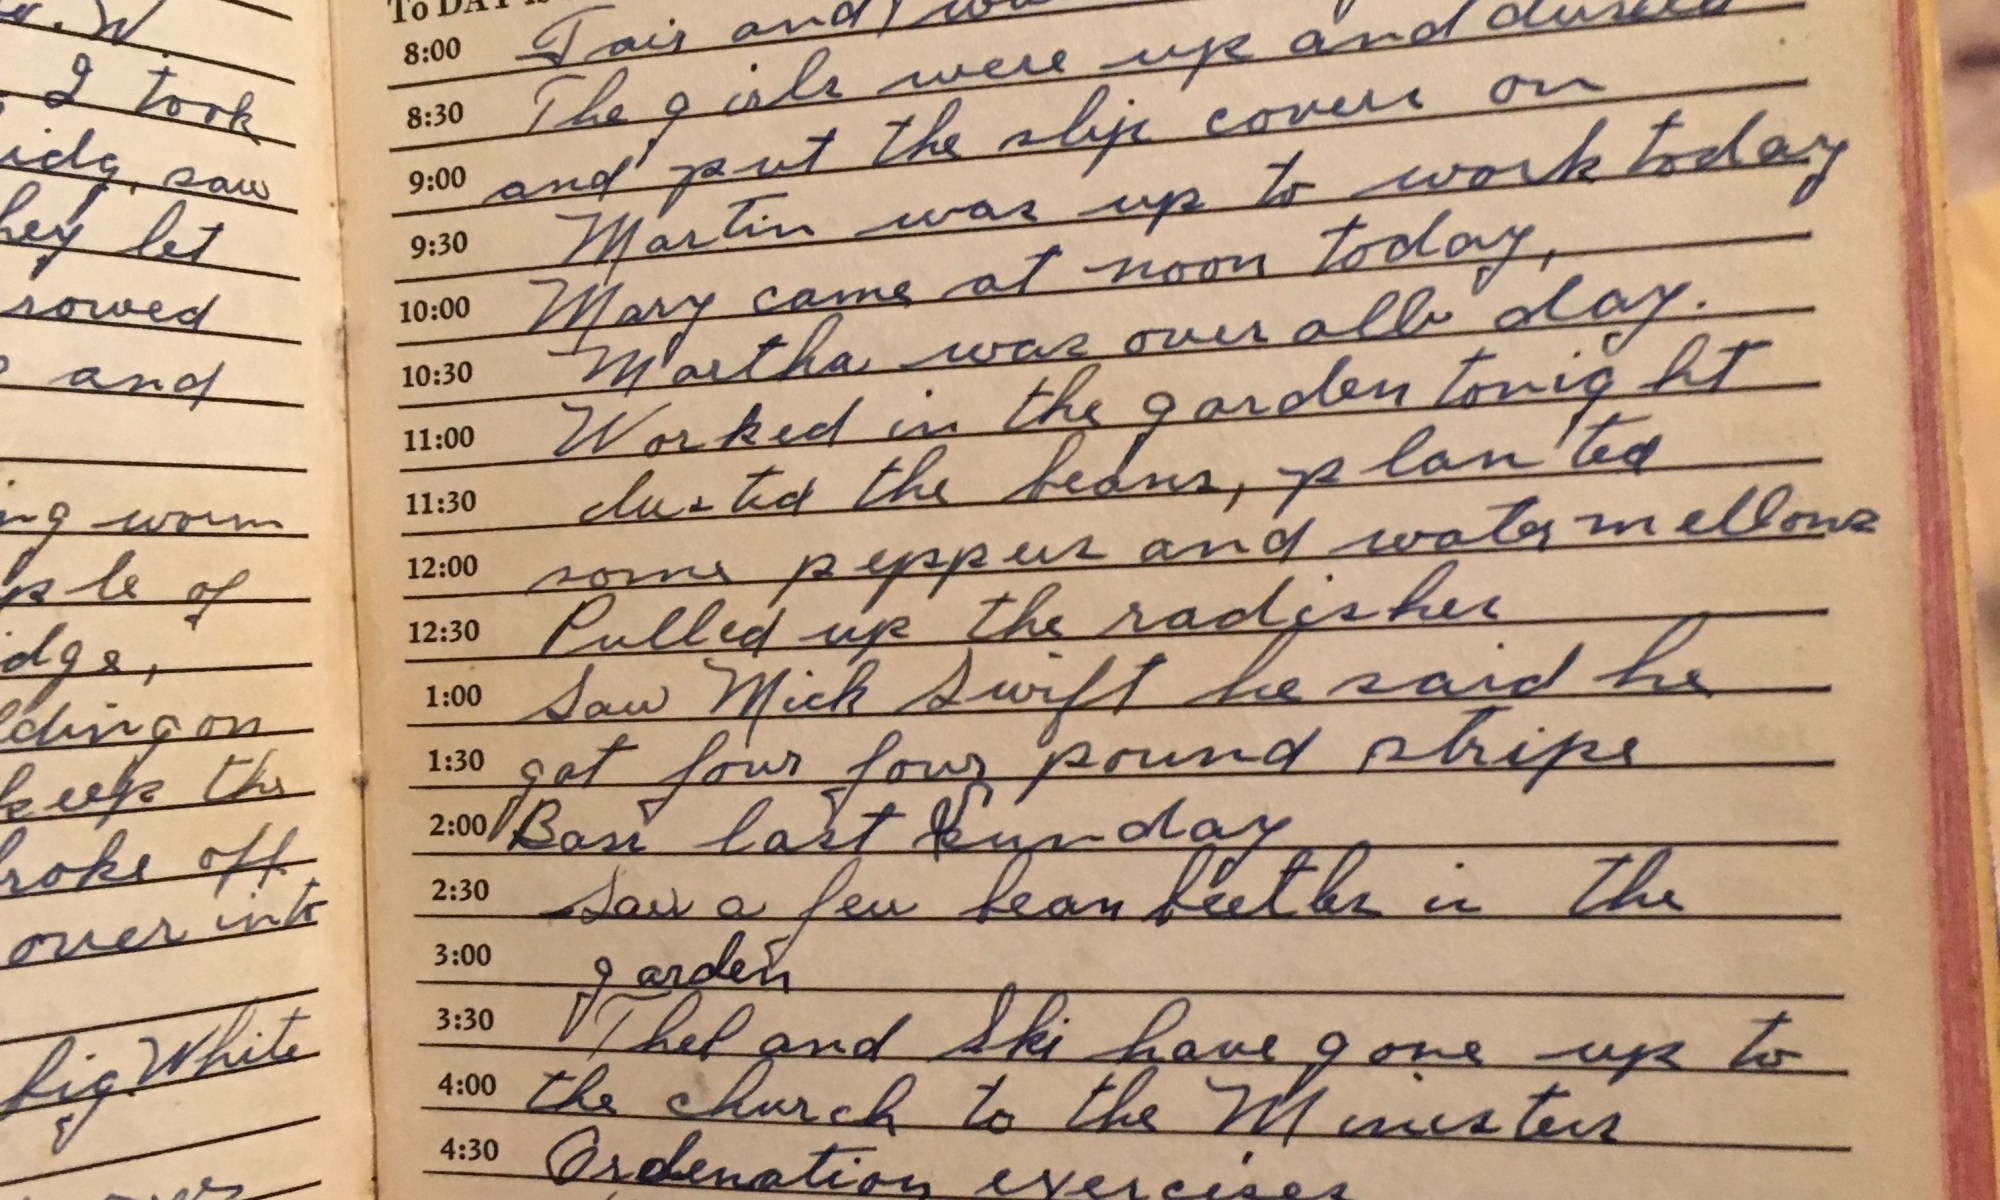 I took
saw
let
rowed
and
worm
of
on
keep the
off
over into
big White
To DAY
8:00 Fair and
8:30 The girls were up and dusted
9:00 and put the slip covers on
9:30 Martin was up to work today
10:00 Mary came at noon today,
10:30 Martha was over all day.
11:00 Worked in the garden tonight
11:30 dusted the beans, planted
12:00 some peppers and watermellons
12:30 Pulled up the radishes
1:00 Saw Mick Swift he said he
1:30 got four four pound stripe
2:00 Bass last Sunday
2:30 Saw a few bean beetles in the
3:00 garden
3:30 Thel and Ski have gone up to
4:00 the church to the Ministers
4:30 Ordenation exercises